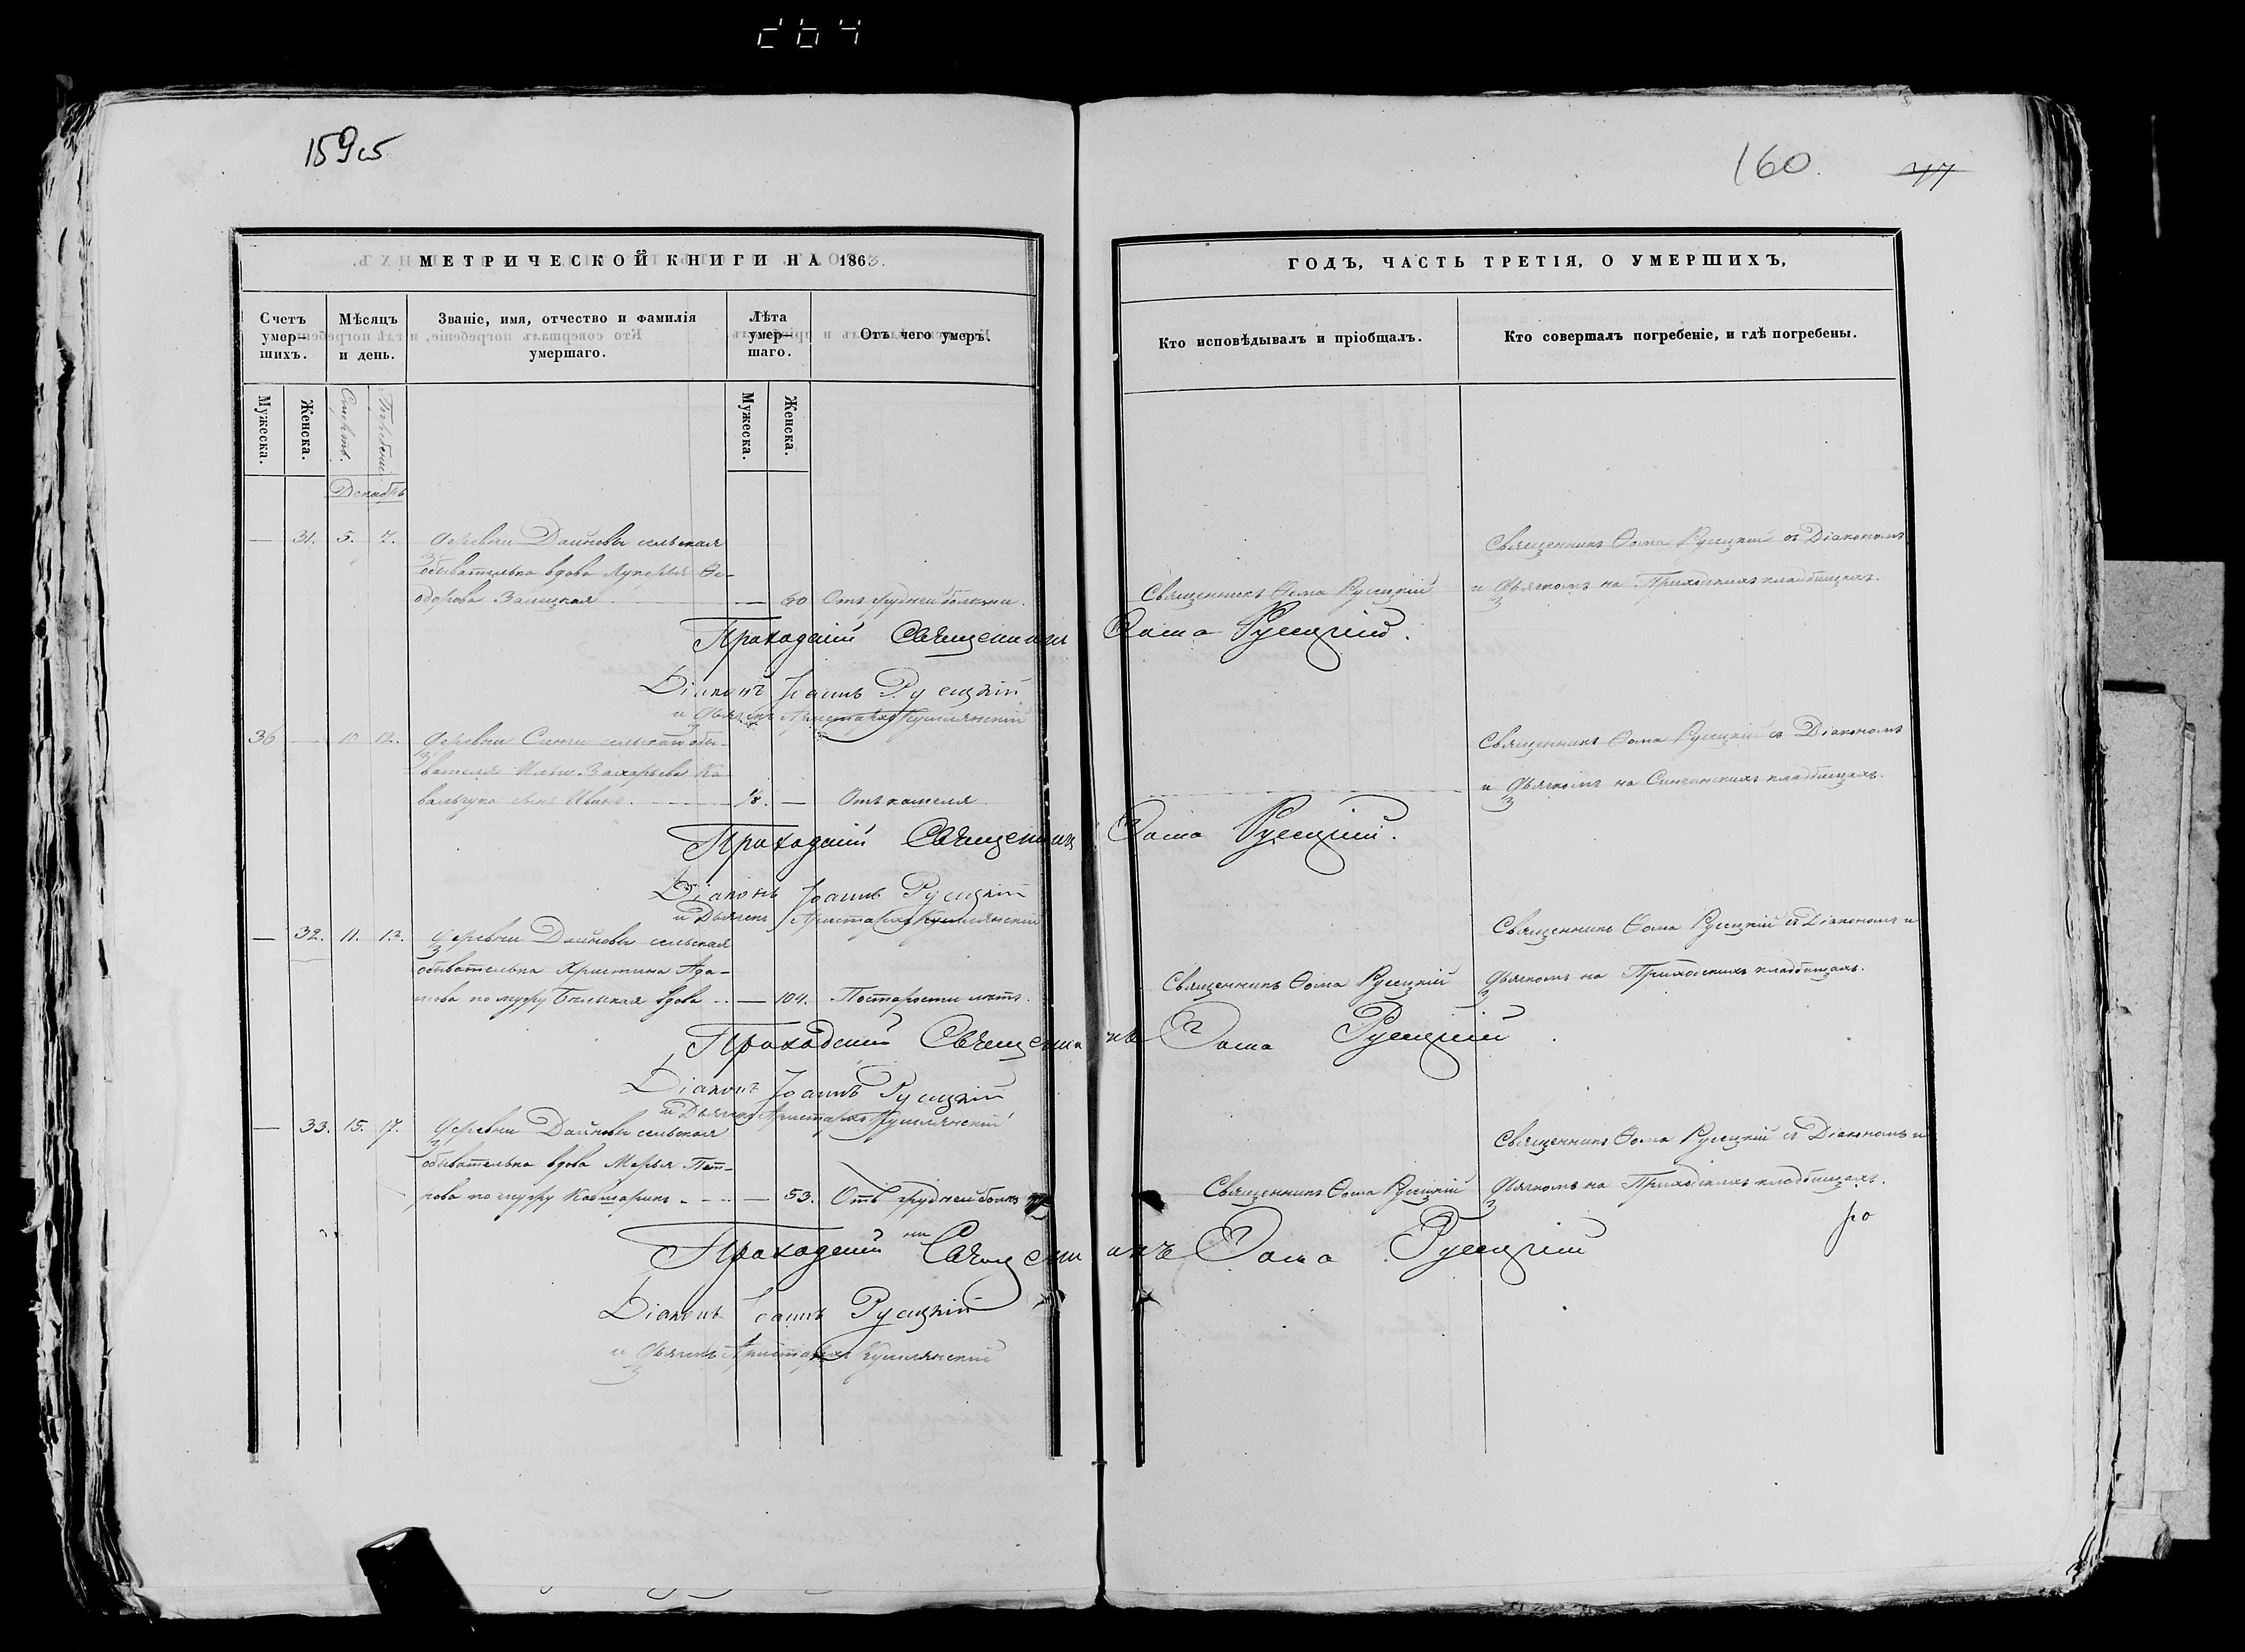 159об
160.
77
МЕТРИЧЕСКОЙ КНИГИ НА 1863.
ГОДЪ, ЧАСТЬ ТРЕТІЯ, О УМЕРШИХЪ,
Счетъ умер-шихъ.
Мѣсяцъ и день.
Званіе, имя, отчество и фамилія умершаго.
Лѣта умер-шаго.
Отъ чего умеръ.
Кто исповѣдывалъ и пріобщалъ.
Кто совершалъ погребеніе, и гдѣ погребены.
Мужеска.
Женска.
Смерть.
Мужеска.
Женска.
Декабрь
— 31. 5. 7. Деревни Дайновы сельская
обывателька вдова Лукерья Ѳе-
дорова Залицкая — 60 Отъ грудней болезни.
Священникъ Ѳома Русецкій
Священникъ Ѳома Русецкій съ Діакономъ
и Дьячкомъ на Приходскихъ кладбищахъ.
Приходский Священникъ Ѳома Русецкий.
Діаконъ Іоаннъ Русецкій
и Дьячекъ Аристархъ
36 — 10 12. Деревни Синчи сельскаго обы-
вателя Ильи Захарьева Ко-
вальчука сынъ Иванъ. 1/8. — Отъ кашеля
Священникъ Ѳома Русецкій съ Діакономъ
и Дьячкомъ на Синчанскихъ кладбищахъ.
Приходский Священникъ Ѳома Русецкий.
Діаконъ Іоаннъ Русецкій
и Дьячекъ Аристархъ
— 32. 11. 13. Деревни Дайновы сельская
обывателька Христина Ада-
мова по мужу Бельская вдова — 104. По старости летъ.
Священникъ Ѳома Русецкій
Священникъ Ѳома Русецкій съ Діакономъ и
Дьячкомъ на Приходскихъ кладбищахъ.
Приходский Священникъ Ѳома Русецкий
Діаконъ Іоаннъ Русецкій
и Дьячекъ Аристархъ
— 33. 15. 17. Деревни Дайновы сельская
обывателька вдова Марья Пет-
рова по мужу — 53. Отъ грудней
Священникъ Ѳома Русецкій
Священникъ Ѳома Русецкій съ Діакономъ и
Дьячкомъ на Приходскихъ кладбищахъ.
Приходский Священникъ Ѳома Русецкий
Діаконъ Іоаннъ Русецкій
и Дьячекъ Аристархъ